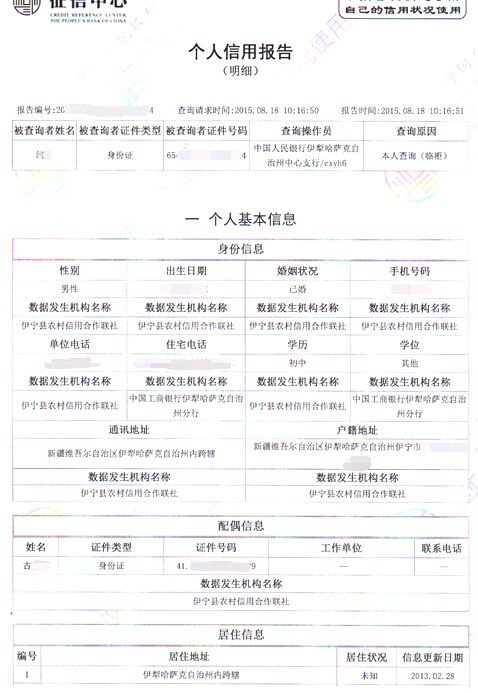 征信中心
CREDIT REFERENCE CENTER,
THE PEOPLE'S BANK OF CHINA
自己的信用状况使用
个人信用报告
（明细）
报告编号:20 4 查询请求时间:2015.08.18 10:16:50 报告时间:2015.08.18 10:16:51
被查询者姓名 被查询者证件类型 被查询者证件号码 查询操作员 查询原因
闫 身份证 65 4 中国人民银行伊犁哈萨克自治州中心支行/cxyh6 本人查询（临柜）
一 个人基本信息
身份信息
性别 出生日期 婚姻状况 手机号码
男性 已婚
数据发生机构名称 数据发生机构名称 数据发生机构名称 数据发生机构名称
伊宁县农村信用合作联社 伊宁县农村信用合作联社 伊宁县农村信用合作联社 伊宁县农村信用合作联社
单位电话 住宅电话 学历 学位
初中 其他
数据发生机构名称 数据发生机构名称 数据发生机构名称 数据发生机构名称
伊宁县农村信用合作联社 中国工商银行伊犁哈萨克自治州分行 伊宁县农村信用合作联社 中国工商银行伊犁哈萨克自治州分行
通讯地址 户籍地址
新疆维吾尔自治区伊犁哈萨克自治州内跨辖 新疆维吾尔自治区伊犁哈萨克自治州伊宁市
数据发生机构名称 数据发生机构名称
伊宁县农村信用合作联社 伊宁县农村信用合作联社
配偶信息
姓名 证件类型 证件号码 工作单位 联系电话
古 身份证 41. 9 — —
数据发生机构名称
伊宁县农村信用合作联社
居住信息
编号 居住地址 居住状况 信息更新日期
1 伊犁哈萨克自治州内跨辖 未知 2013.02.28